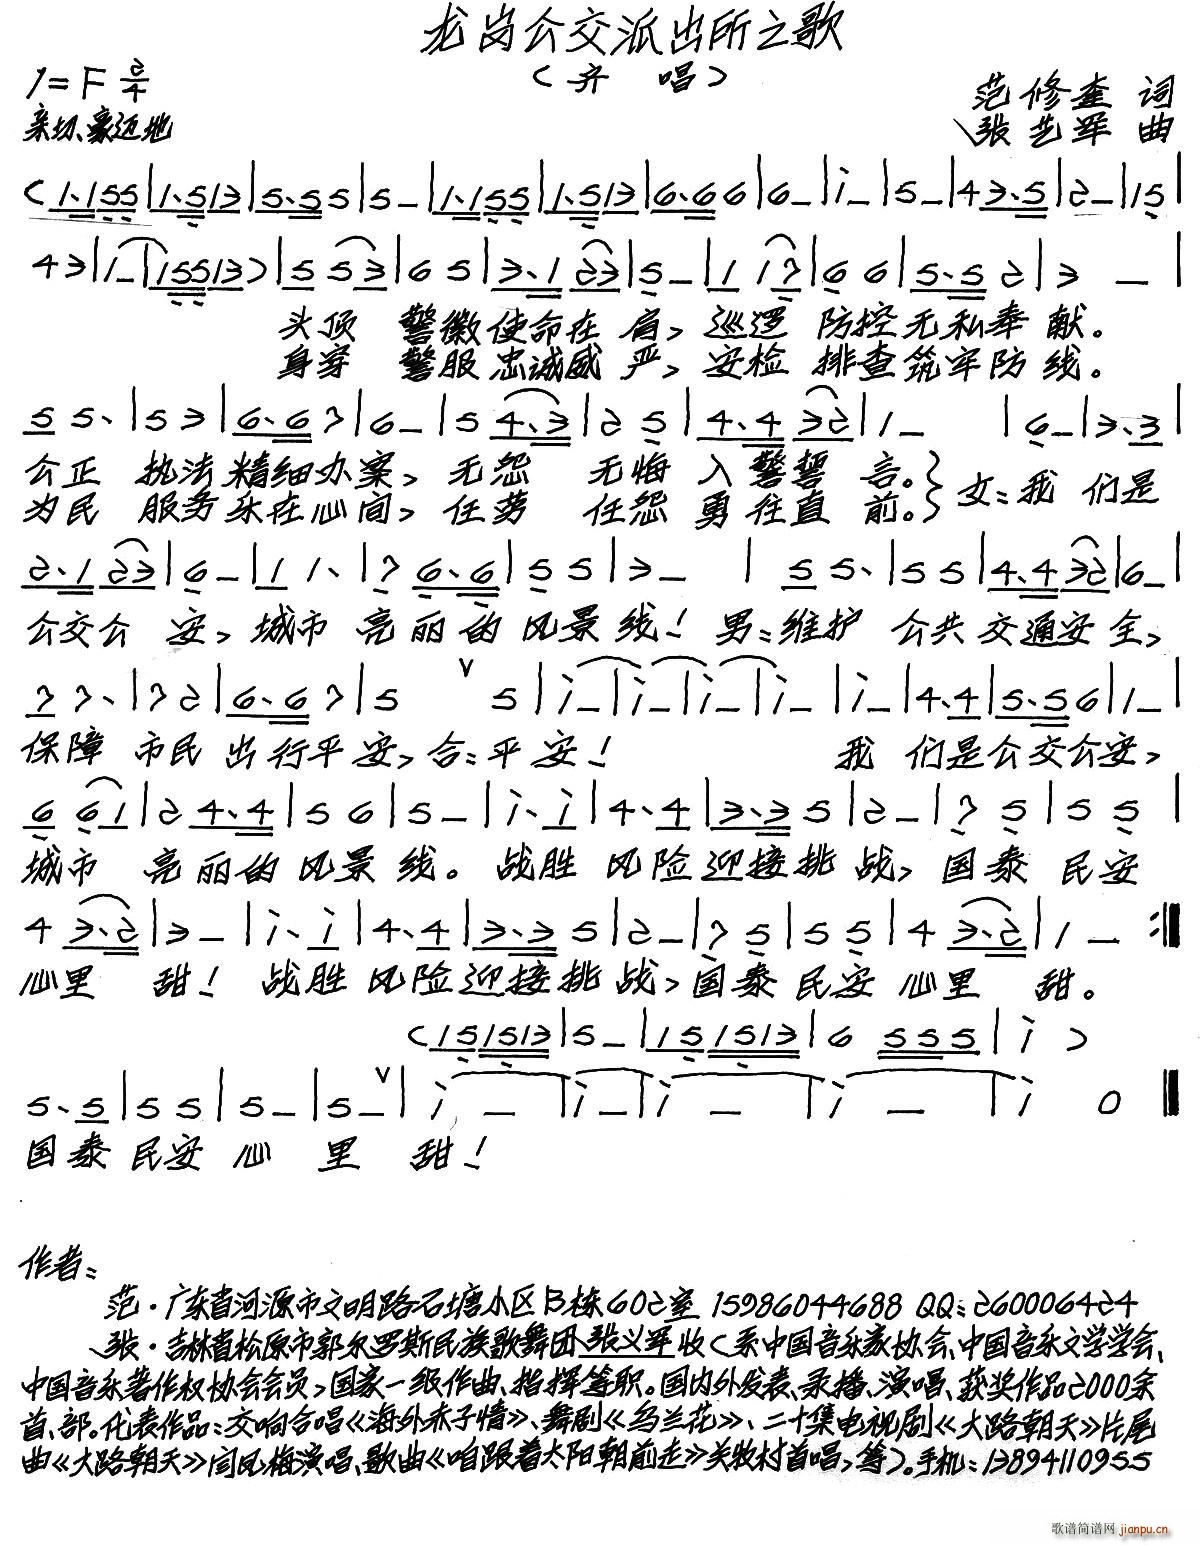 龙岗公交派出所之歌
（齐 唱）
1=F 2/4
范修奎 词
亲切、豪迈地
张艺军 曲
(1·155|1·513|5·555|5–|1·155|1·513|6·666|6–|i–|5–|43·5|2–|15|
43|1–|115513)|553|65|3·123|5–|117|66|5·52|3 –|
头顶 警徽使命在 肩，巡逻 防控无私奉 献。
身穿 警服忠诚威 严，安检 排查筑牢防 线。
55·|53|6·67|6–|54·3|25|4·432|1– |6–|3·3|
公正 执法精细办案，无怨 无悔 入警誓 言。} 女：我 们是
为民 服务乐在心间，任劳 任怨 勇往直 前。
2·123|6–|11·|76·6|55|3– |55·|55|4·432|6–|
公交公 安，城市 亮丽的风景线！ 男：维护 公共交通安全，
77·|72|6·67|5 ∨ 5|i–|i–|i–|i–|i–|4·4|5·56|1–|
保障 市民 出行平安，合：平安！ 我 们是公交公安，
661|24·4|56|5–|i·i|4·4|3·35|2–|75|55|
城市 亮丽的风景线。战胜 风险迎接挑 战，国泰 民安
43·2|3–|i·i|4·4|3·35|2–|75|55|43·2|1–:‖
心里 甜！ 战胜 风险迎接挑 战，国泰民安 心里 甜。
(151513|5–|151513|6555|i)
5·5|55|5–|5–∨|i–|i–|i–|i–|i 0‖
国泰 民安 心 里 甜！
作者：
范·广东省河源市文明路石塘小区B栋602室 15986044688 QQ：260006424
张·吉林省松原市郭尔罗斯民族歌舞团张义军收（系中国音乐家协会、中国音乐文学学会、
中国音乐著作权协会会员，国家一级作曲、指挥等职。国内外发表、录播、演唱、获奖作品2000余
首、部。代表作品：交响合唱《海外赤子情》、舞剧《乌兰花》、二十集电视剧《大路朝天》片尾
曲《大路朝天》闫凤梅演唱、歌曲《咱跟着太阳朝前走》关牧村首唱，等）。手机：13894110955
歌谱简谱网 jianpu.cn